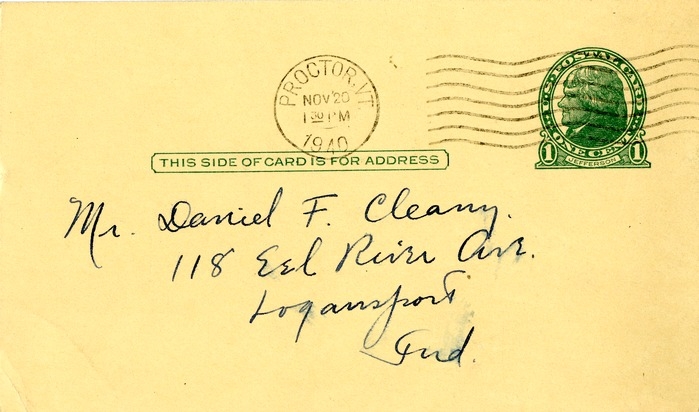 PROCTOR, VT.
NOV 20
1 30 PM
1940
U.S. POSTAL CARD
ONE CENT
1 JEFFERSON 1
THIS SIDE OF CARD IS FOR ADDRESS
Mr. Daniel F. Cleary.
118 Eel River Ave.
Logansport
Ind.